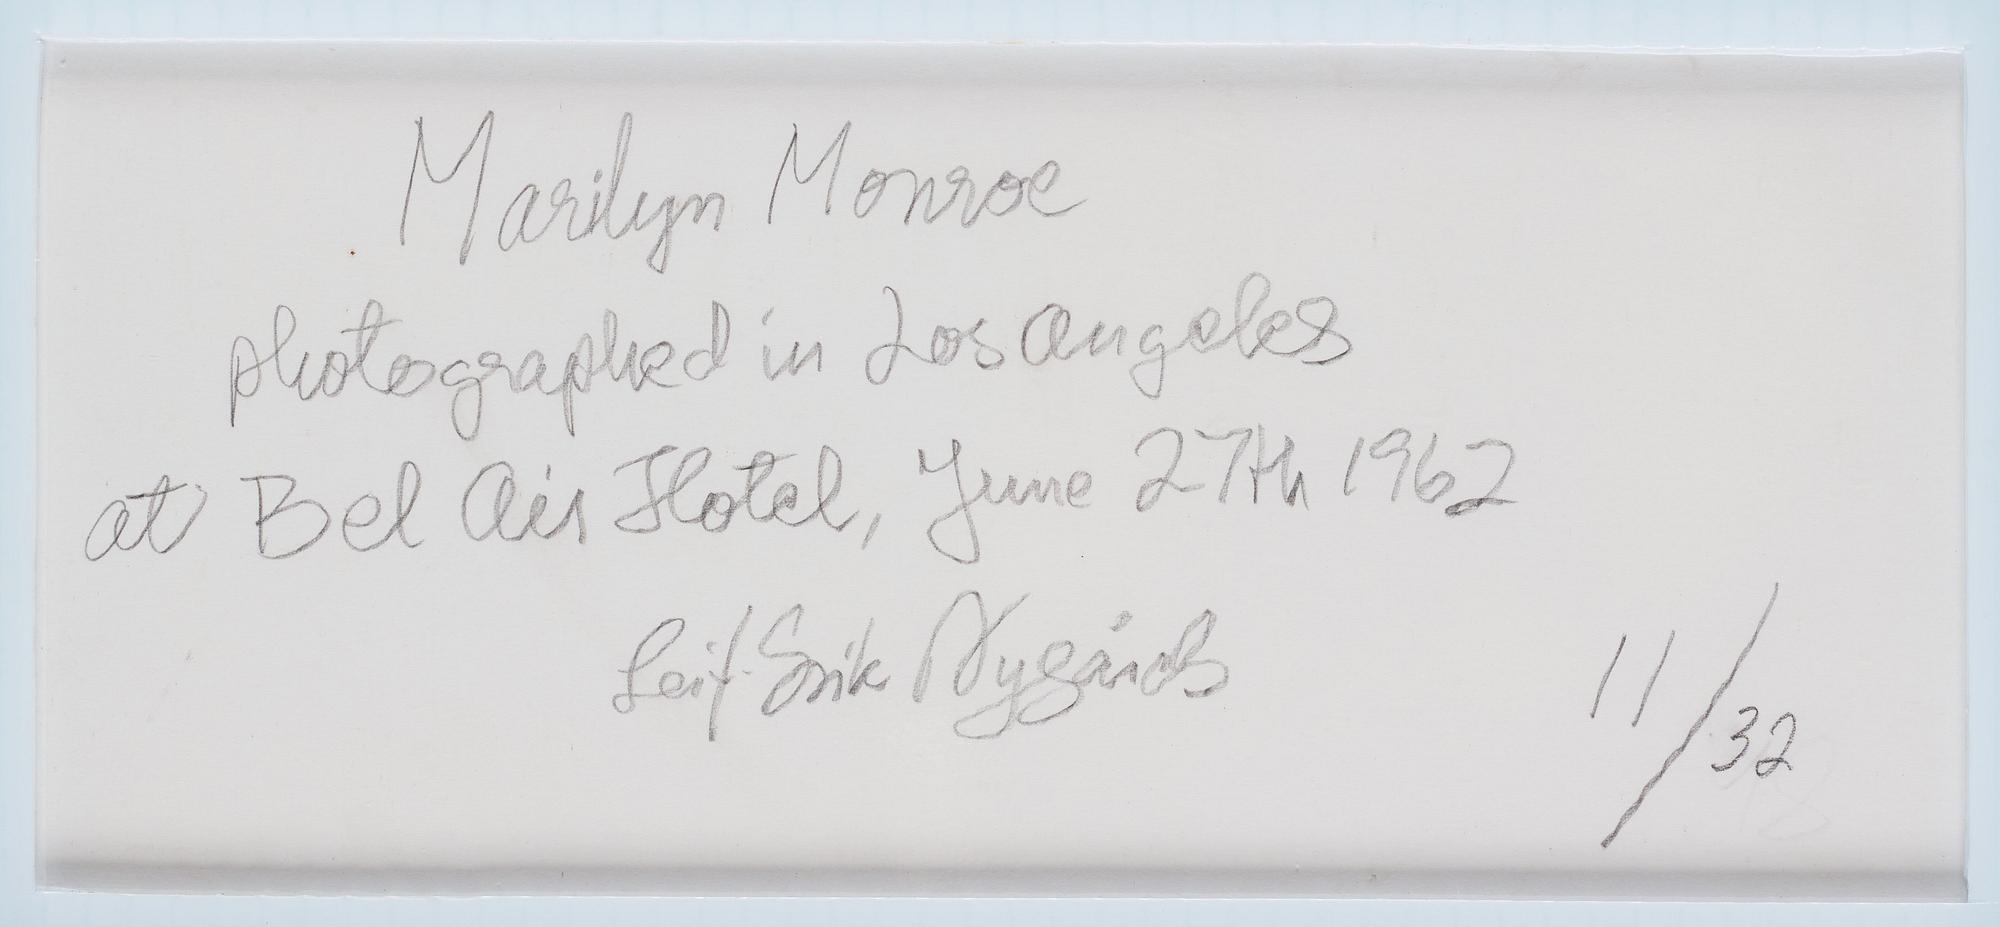 Marilyn Monroe
photographed in Los Angeles
at Bel Air Hotel, June 27th 1962
Leif-Erik Nygårds
11/32